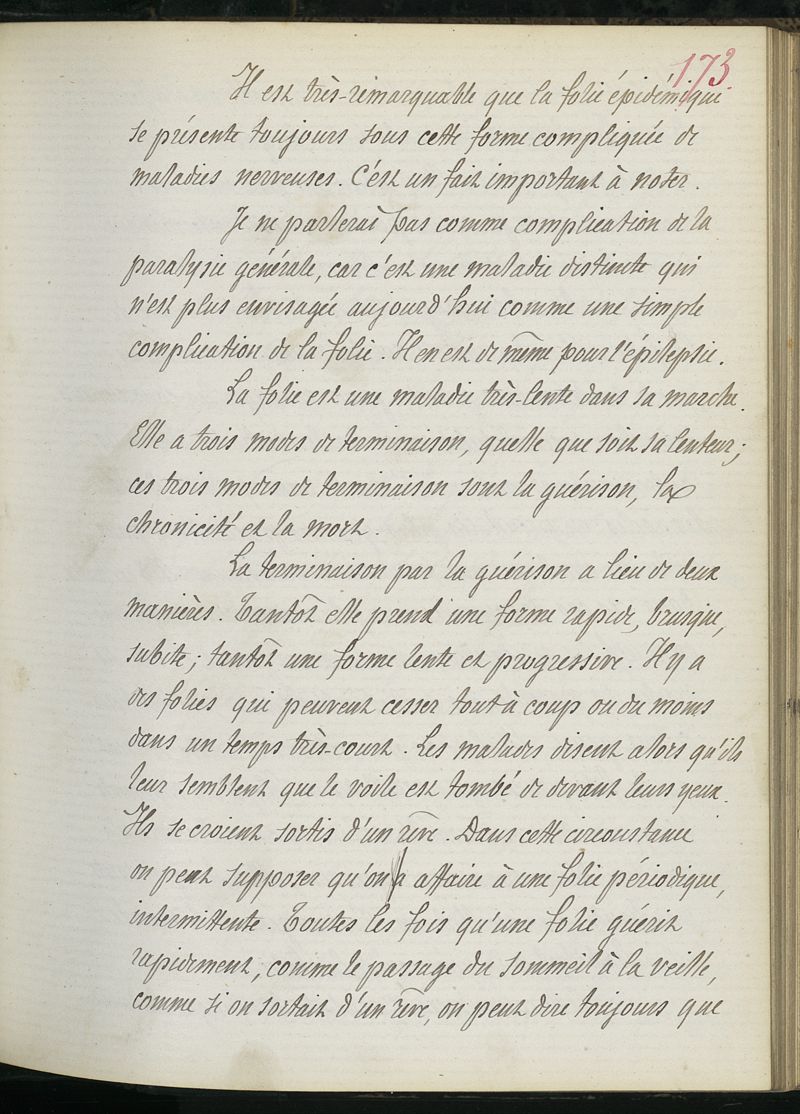 173
Il est très-remarquable que la folie épidémique
se présente toujours sous cette forme compliquée de
maladies nerveuses. C'est un fait important à noter.
Je ne parlerai pas comme complication de la
paralysie générale, car c'est une maladie distincte qui
n'est plus envisagée aujourd'hui comme une simple
complication de la folie. Il en est de même pour l'épilepsie.
La folie est une maladie très-lente dans sa marche.
Elle a trois modes de terminaison, quelle que soit sa lenteur;
ces trois modes de terminaison sont la guérison, la
chronicité et la mort.
La terminaison par la guérison a lieu de deux
manières. Tantôt elle prend une forme rapide, brusque,
subite; tantôt une forme lente et progressive. Il y a
des folies qui peuvent cesser tout à coup ou du moins
dans un temps très-court. Les malades disent alors qu'ils
leur semblent que le voile est tombé de devant leurs yeux.
Ils se croient sortis d'un rêve. Dans cette circonstance
on peut supposer qu'on a affaire à une folie périodique,
intermittente. Toutes les fois qu'une folie guérit
rapidement, comme le passage du sommeil à la veille,
comme si on sortait d'un rêve, on peut dire toujours que